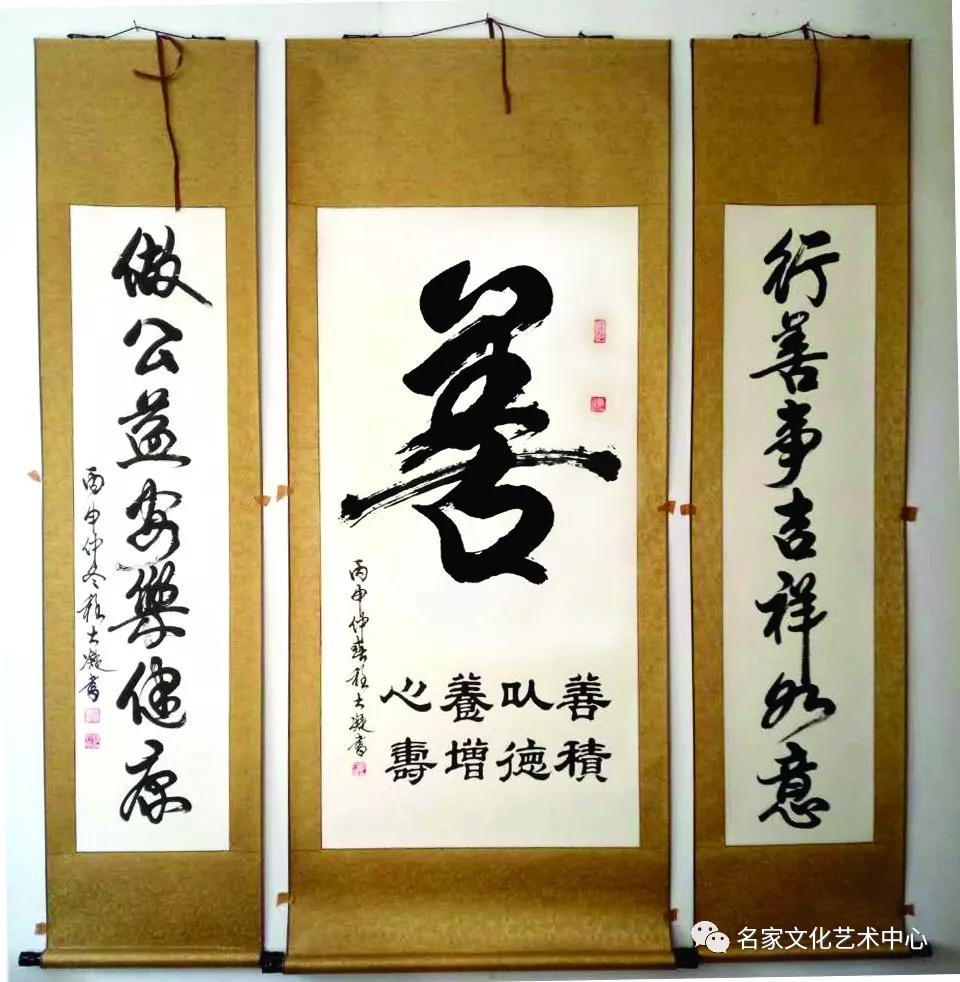 行善事吉祥如意
善
善以養心
積德增壽
丙申仲春程大凝書
做公益安樂健康
丙申仲冬程大凝書
名家文化艺术中心